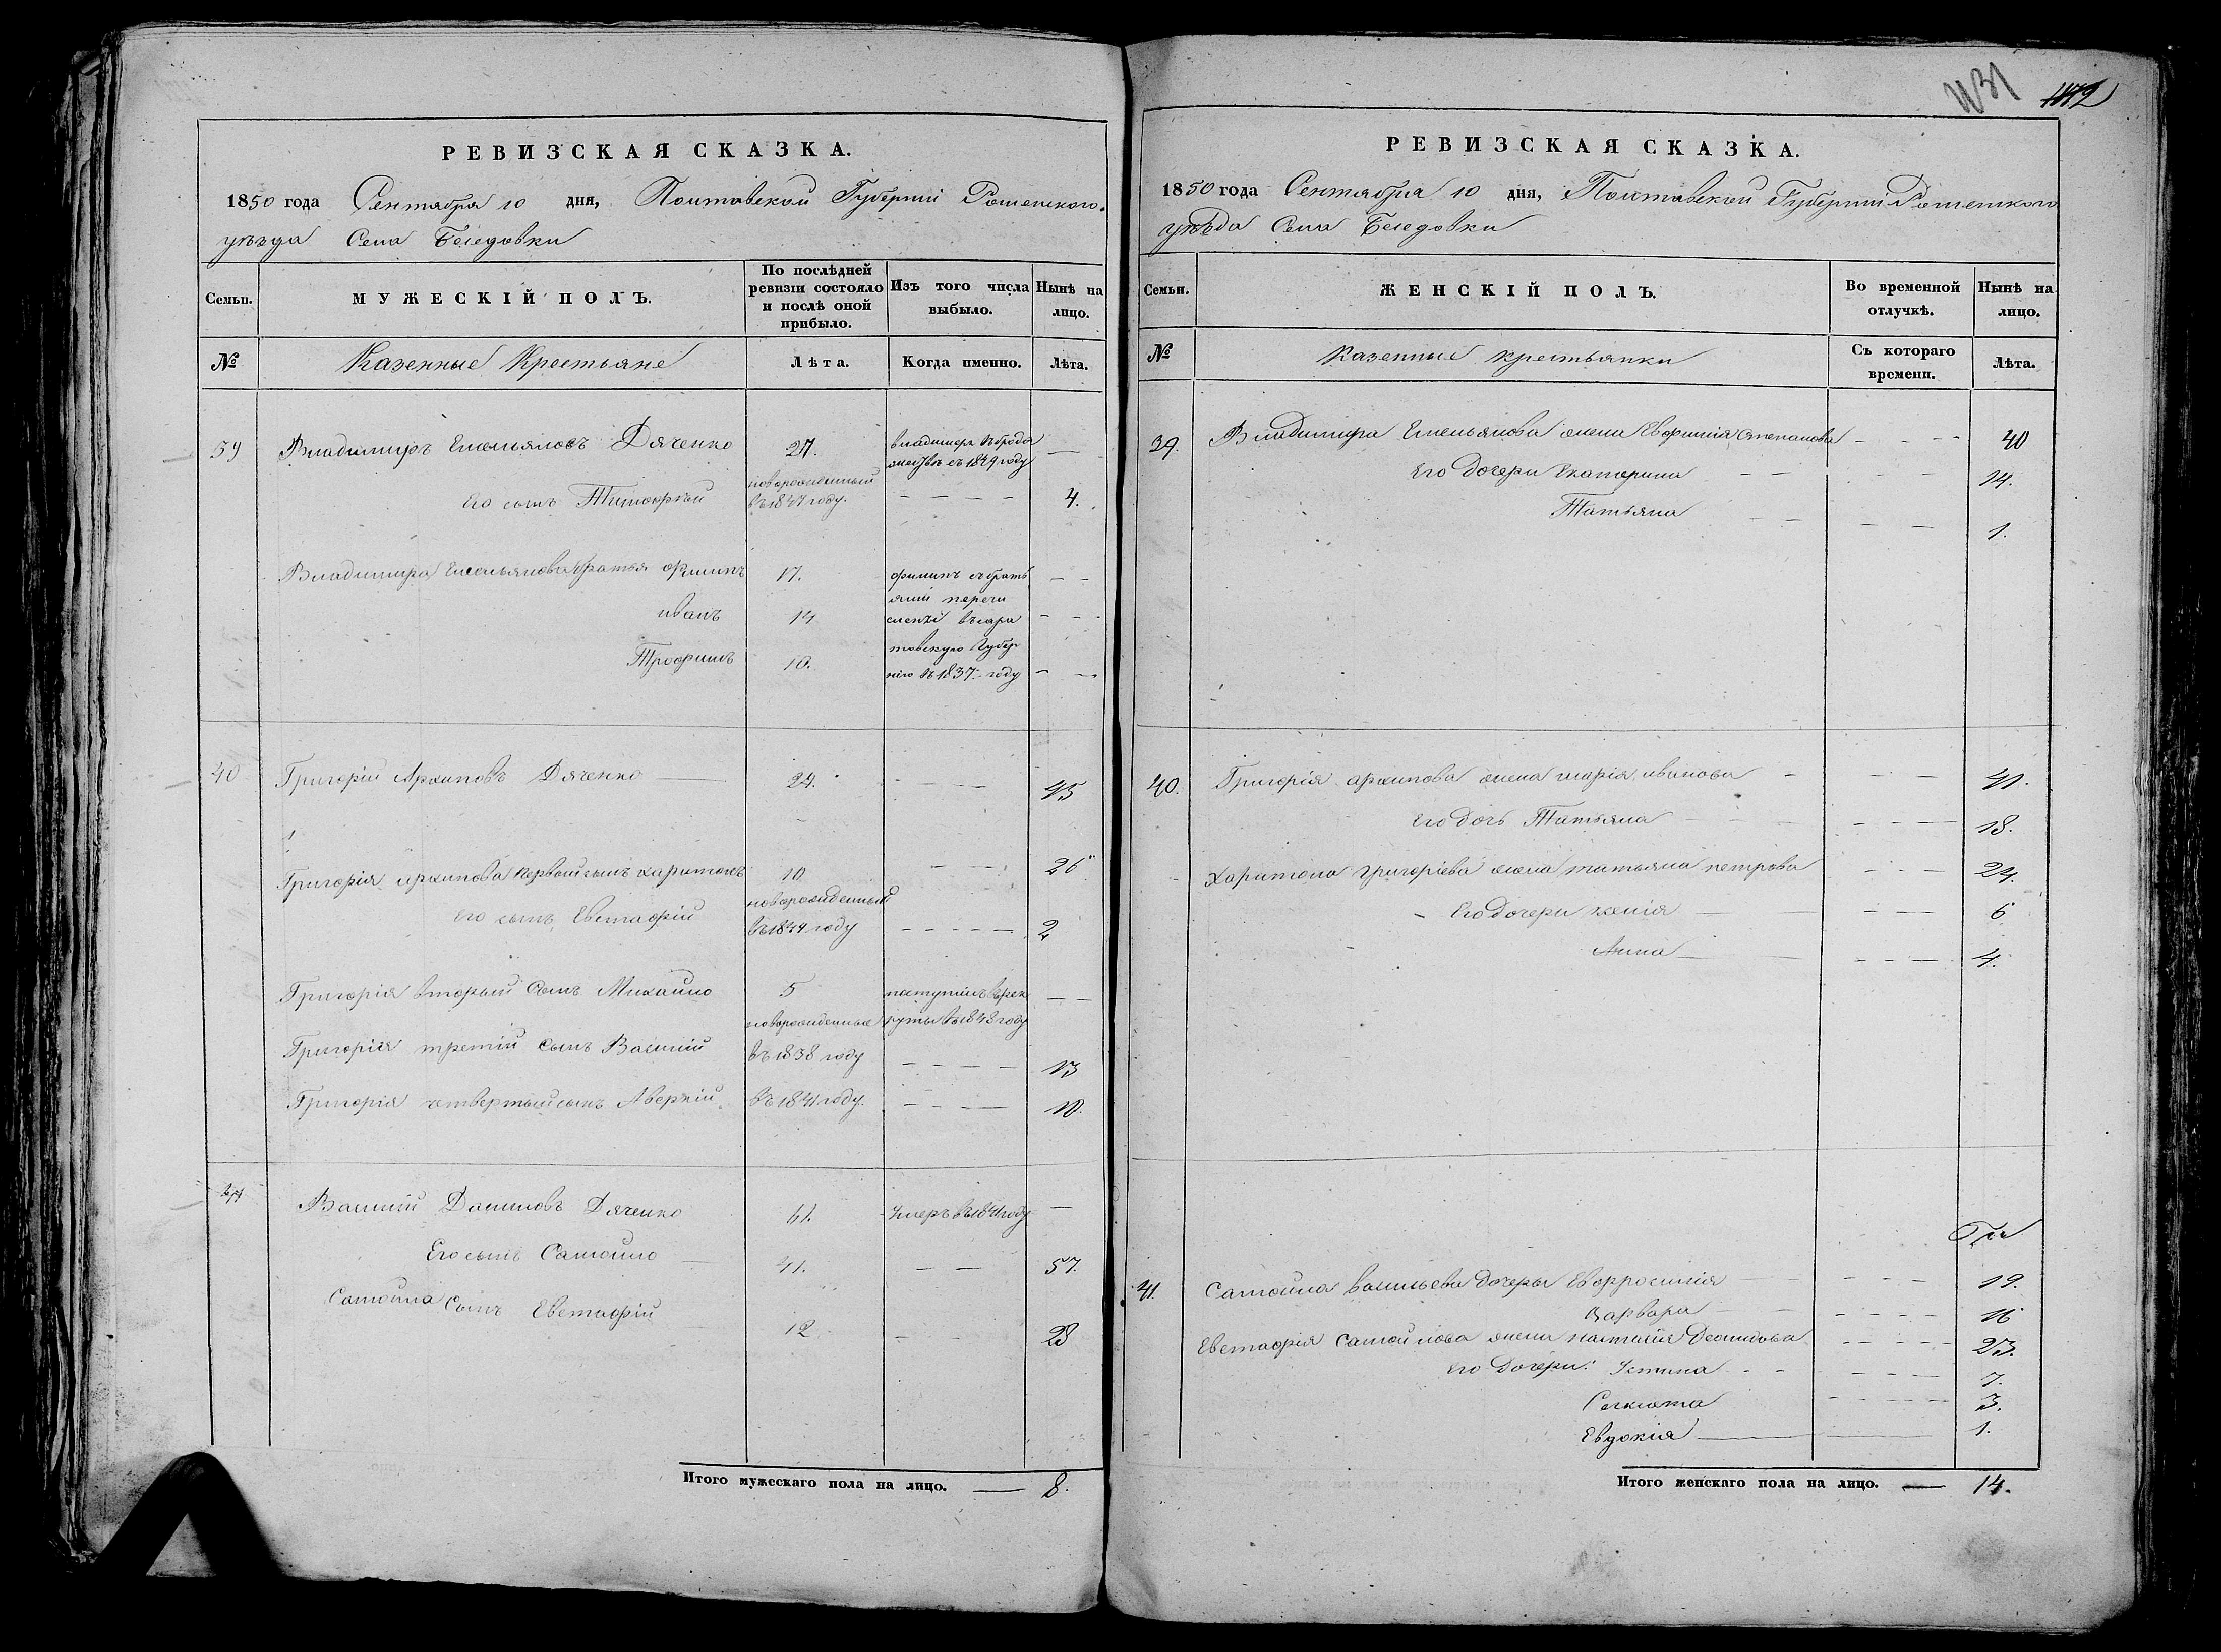 РЕВИЗСКАЯ СКАЗКА.
1850 года Сентября 10 дня, Полтавской Губерніи Роменского
уѣзда Села Беседовки
Семьи. МУЖЕСКІЙ ПОЛЪ. По послѣдней ревизіи состояло и послѣ оной прибыло. Изъ того числа выбыло. Нынѣ на лицо.
№ Казенные Крестьяне Лѣта. Когда именно. Лѣта.
39 Владимиръ Емельяновъ Дяченко 27. Владимиръ въ 1849 году —
Его сынъ Тимофей новорожденный въ 1847 году. — — — — 4.
Владимира Емельянова братья Филипъ 17. Филипъ съ братьями перечислены въ Саратовскую Губернію въ 1837 году — —
Иванъ 14 — —
Трофимъ 10. — —
40 Григорій Архиповъ Дяченко — 29. — — — 45
Григорія Архипова первый сынъ Харитонъ 10 — — 26
Его сынъ Евстафій новорожденный въ 1849 году — — — — — 2
Григорія вторый сынъ Михайло 5 поступилъ въ рекруты въ 1848 году — —
Григорія третій сынъ Василій новорожденные въ 1838 году — — — — 13
Григорія четвертый сынъ Аверкій въ 1841 году. — — — — 10.
41 Василій Даниловъ Дяченко 61. Умеръ въ 1841 году —
Его сынъ Самойло — 41. — — 57.
Самойла сынъ Евстафій 12 — — 28
Итого мужескаго пола на лицо. — 8.
1131 1172
РЕВИЗСКАЯ СКАЗКА.
1850 года Сентября 10 дня, Полтавской Губерніи Роменского
уѣзда Села Беседовки
Семьи. ЖЕНСКІЙ ПОЛЪ. Во временной отлучкѣ. Нынѣ на лицо.
№ Казенные крестьянки Съ котораго времени. Лѣта.
39. Владимира Емельянова жена Евфимія Степанова — — — — 40
Его дочери Екатерина — — — — 14.
Татьяна — — — — 1.
40. Григорія Архипова жена Марія Иванова — — — 41.
Его дочь Татьяна — — — — — 18.
Харитона Григоріева жена Татьяна Петрова — — — 24.
Его дочери Ксенія — — — — 6
Анна — — — — 4.
41. Самойла Васильева дочери Евфросинія — — — — 19.
Варвара — — — — — 16
Евстафія Самойлова жена Настасія Леонидова — — — — 23.
Его дочери: Устина — — — — — 7.
Секлета — — — — 3.
Евдокія — — 1.
Итого женскаго пола на лицо. — 14.